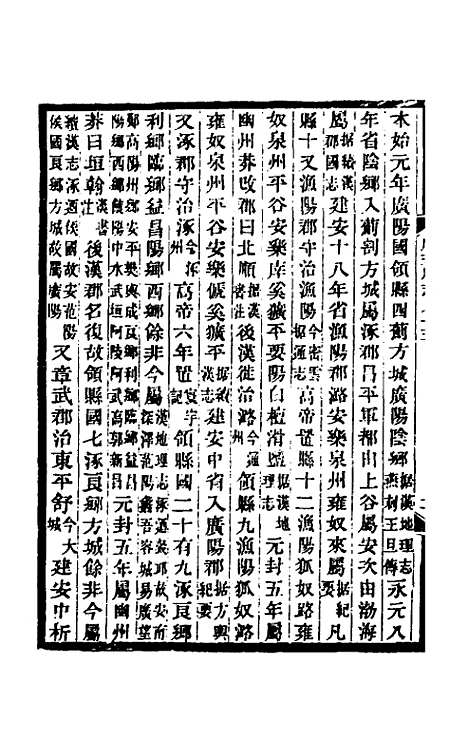 本始元年廣陽國領縣四薊方城廣陽陰鄉據漢地理志燕刺王旦傳永元八
年省陰鄉入薊割方城屬涿郡昌平軍都由上谷屬安次由渤海
屬據續漢郡國志建安十八年省漁陽郡潞安樂泉州雍奴來屬據紀要凡
縣十又漁陽郡守治漁陽今密雲據通志高帝置縣十二漁陽狐奴路雍
奴泉州平谷安樂厗奚獷平要陽白檀滑鹽據漢地理志元封五年屬
幽州莽改郡曰北順據漢書注後漢徙治潞今通州領縣九漁陽狐奴潞
雍奴泉州平谷安樂傂奚獷平據續漢志建安中省入廣陽郡據方輿紀要
又涿郡守治涿今涿州高帝六年置記領縣國二十有九涿良鄉
利鄉臨鄉益昌陽鄉西鄉餘非今屬漢地理志涿逎穀邱故安南深澤范陽蠡吾容城易廣望
鄚高陽州鄉安平樊輿成良鄉利鄉臨鄉益昌陽鄉西鄉饒陽中水武垣阿陵阿武高郭新昌元封五年屬幽州
莽曰垣翰漢書注後漢郡名復故領縣國七涿良鄉方城餘非今屬
續漢志涿逎侯國故安范陽侯國良鄉方城故屬廣陽又章武郡治東平舒今大城建安中析